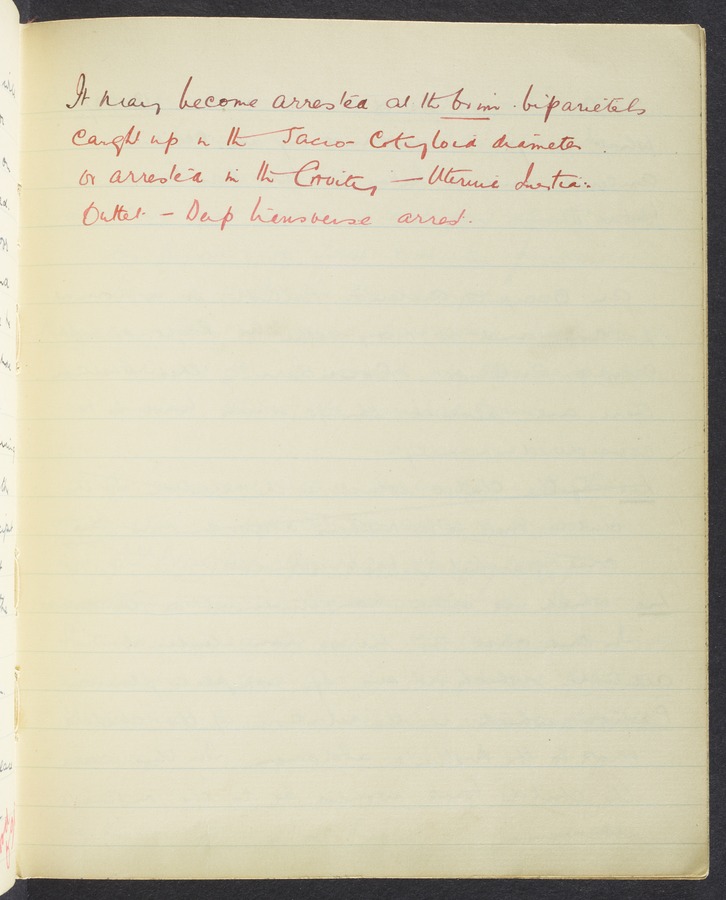 It may become arrested at the brim. biparietals
caught up in the Sacro-Cotyloid diameter.
or arrested in the Cavity — Uterine Inertia:-
Outlet - Deep transverse arrest.